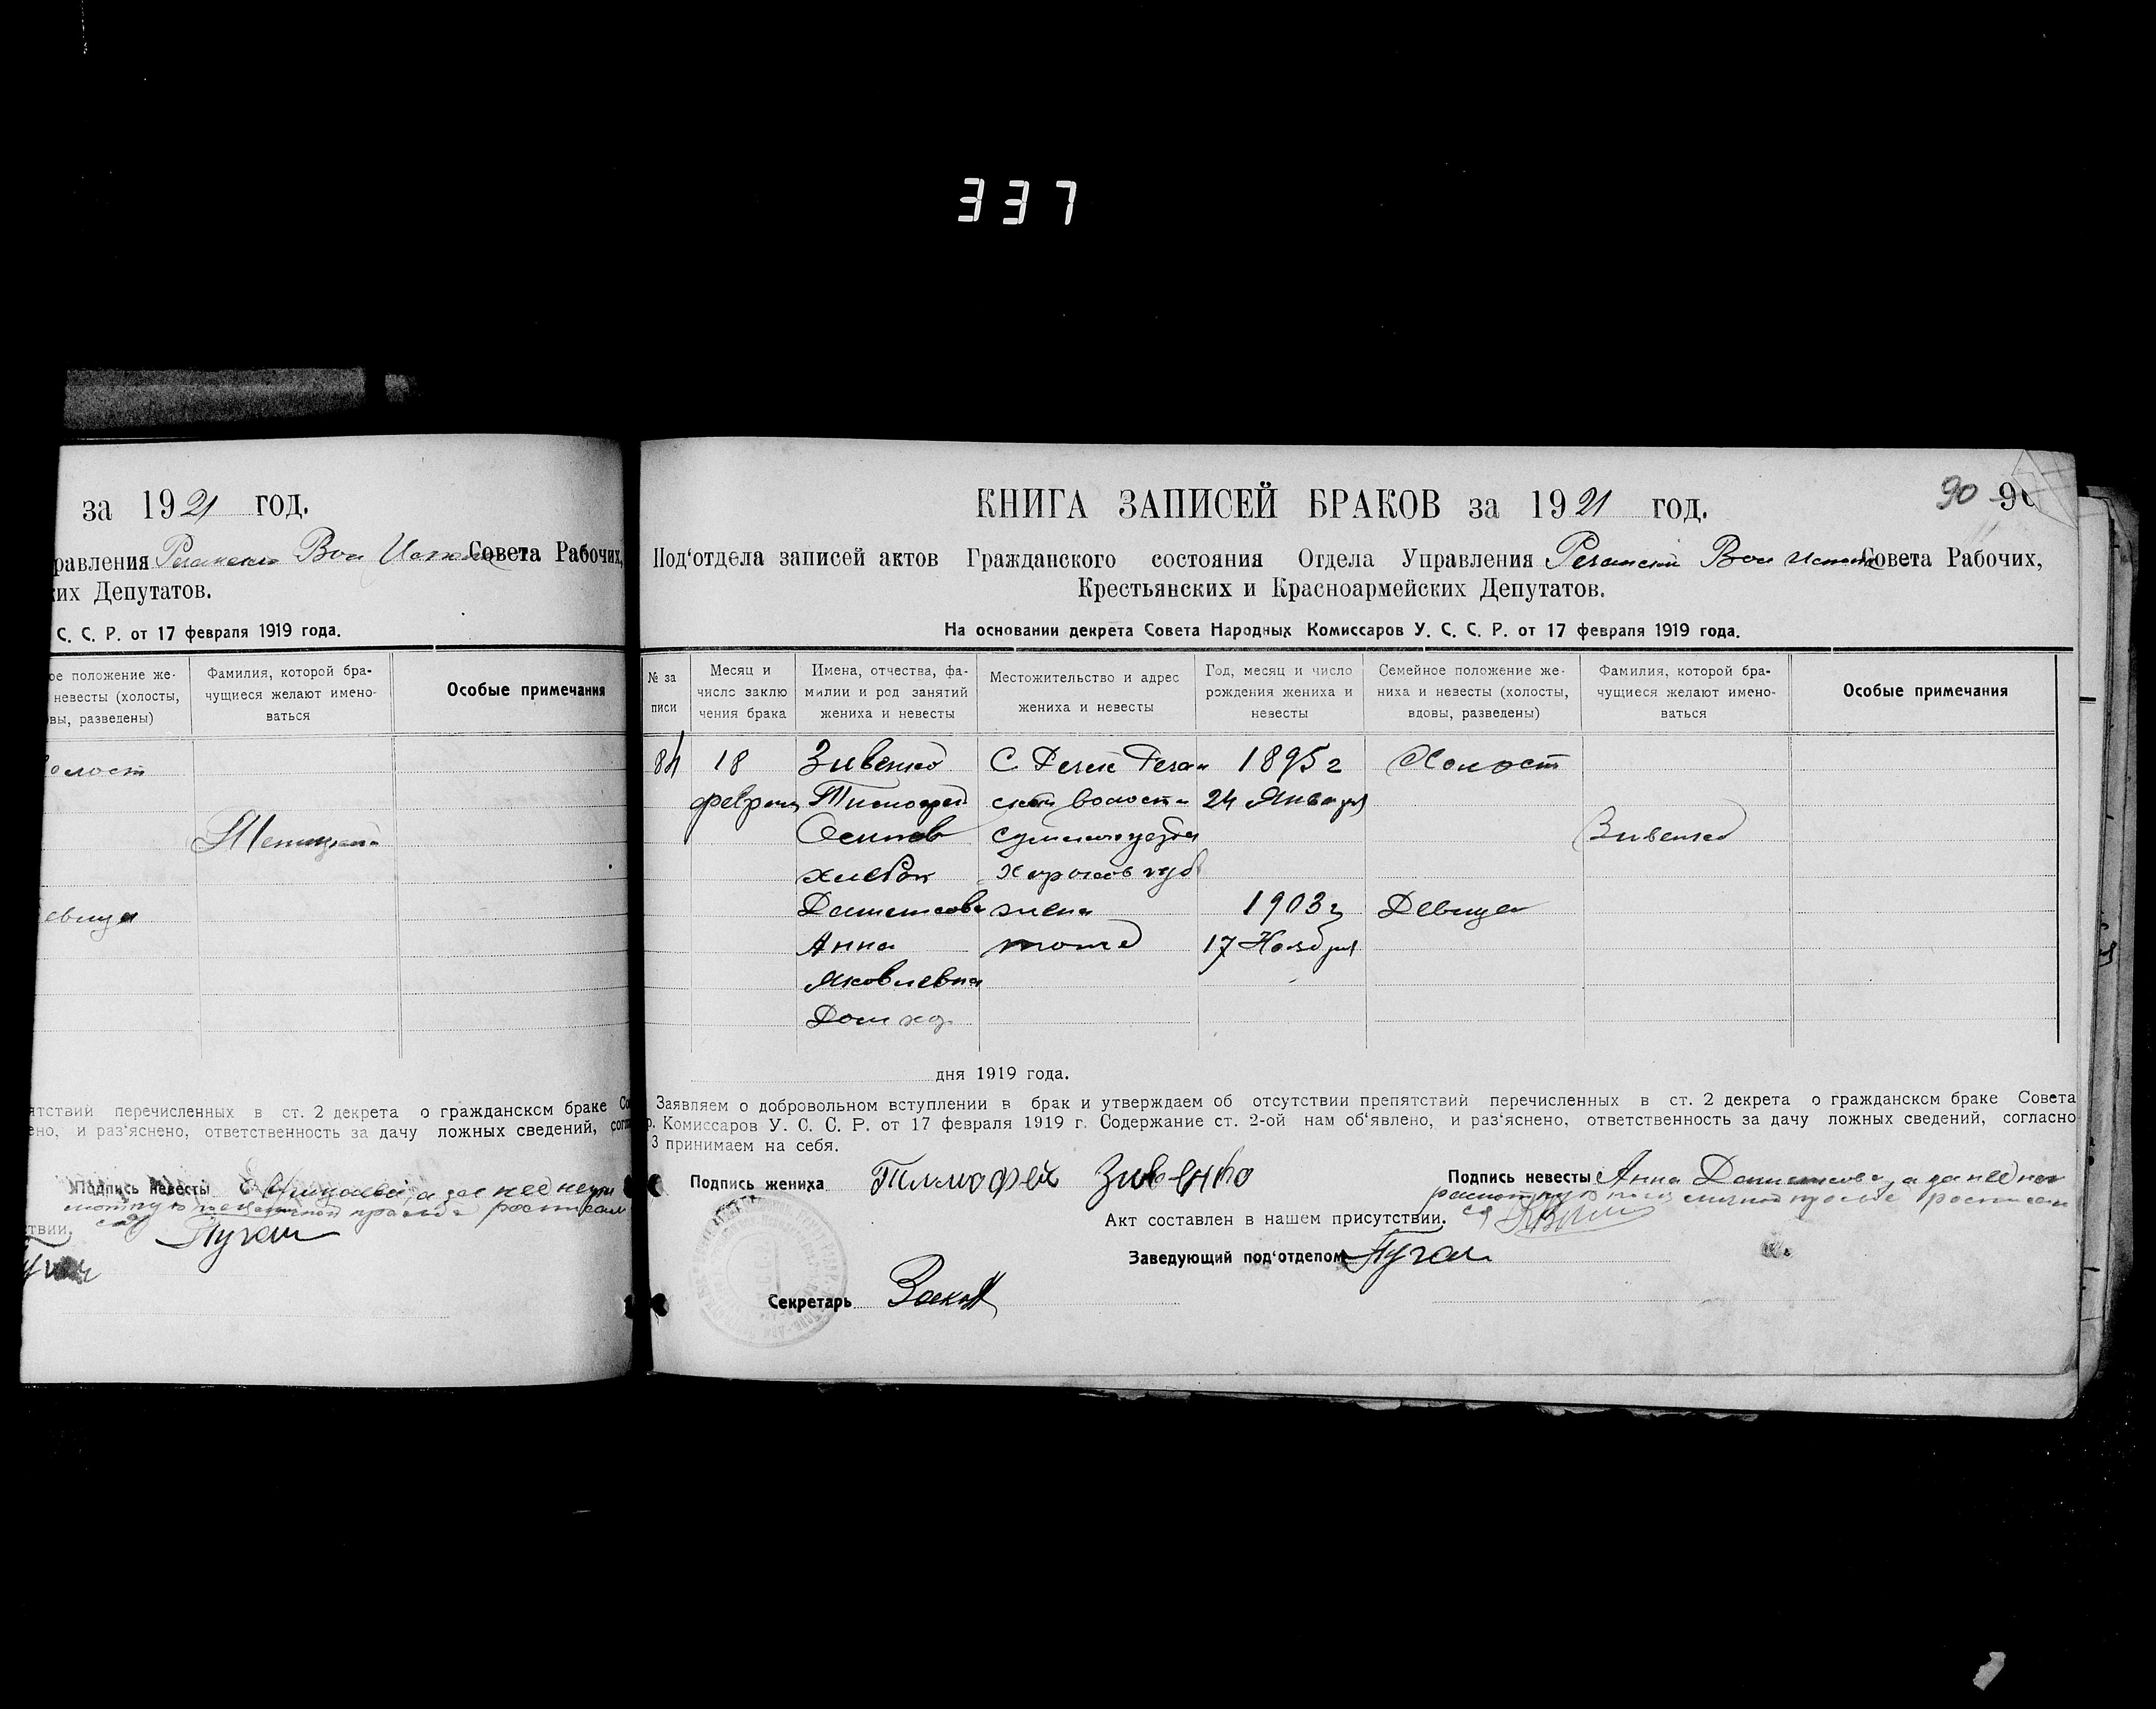 337
за 1921 год.
равления Совета Рабочих,
их Депутатов.
С. С. Р. от 17 февраля 1919 года.
ое положение же-
невесты (холосты,
овы, разведены)
Фамилия, которой бра-
чущиеся желают имено-
ваться
Особые примечания
олост
евица
ятствий перечисленных в ст. 2 декрета о гражданском браке Со
ено, и раз'яснено, ответственность за дачу ложных сведений, согла
Подпись невесты
ствии.
90
КНИГА ЗАПИСЕЙ БРАКОВ за 1921 год.
Под'отдела записей актов Гражданского состояния Отдела Управления Вол Совета Рабочих,
Крестьянских и Красноармейских Депутатов.
На основании декрета Совета Народных Комиссаров У. С. С. Р. от 17 февраля 1919 года.
№ за
писи
Месяц и
число заклю
чения брака
Имена, отчества, фа-
милии и род занятий
жениха и невесты
Местожительство и адрес
жениха и невесты
Год, месяц и число
рождения жениха и
невесты
Семейное положение же-
ниха и невесты (холосты,
вдовы, разведены)
Фамилия, которой бра-
чущиеся желают имено-
ваться
Особые примечания
84 18 Зивенко С. 1895 г Холост
февраля Тимофей волости 24 Января
Осипов Сумского уезда Зивенко
хлебоп Харьков губ
жена 1903 г Девица
Анна тоже 17 Ноября
Яковлевна
Дом хоз
дня 1919 года.
Заявляем о добровольном вступлении в брак и утверждаем об отсутствии препятствий перечисленных в ст. 2 декрета о гражданском браке Совета
р. Комиссаров У. С. С. Р. от 17 февраля 1919 г. Содержание ст. 2-ой нам об'явлено, и раз'яснено, ответственность за дачу ложных сведений, согласно
3 принимаем на себя.
Подпись жениха Тимофей Зивенко
Подпись невесты Анна а за нее не
Акт составлен в нашем присутствии.
Заведующий под'отделом
Секретарь